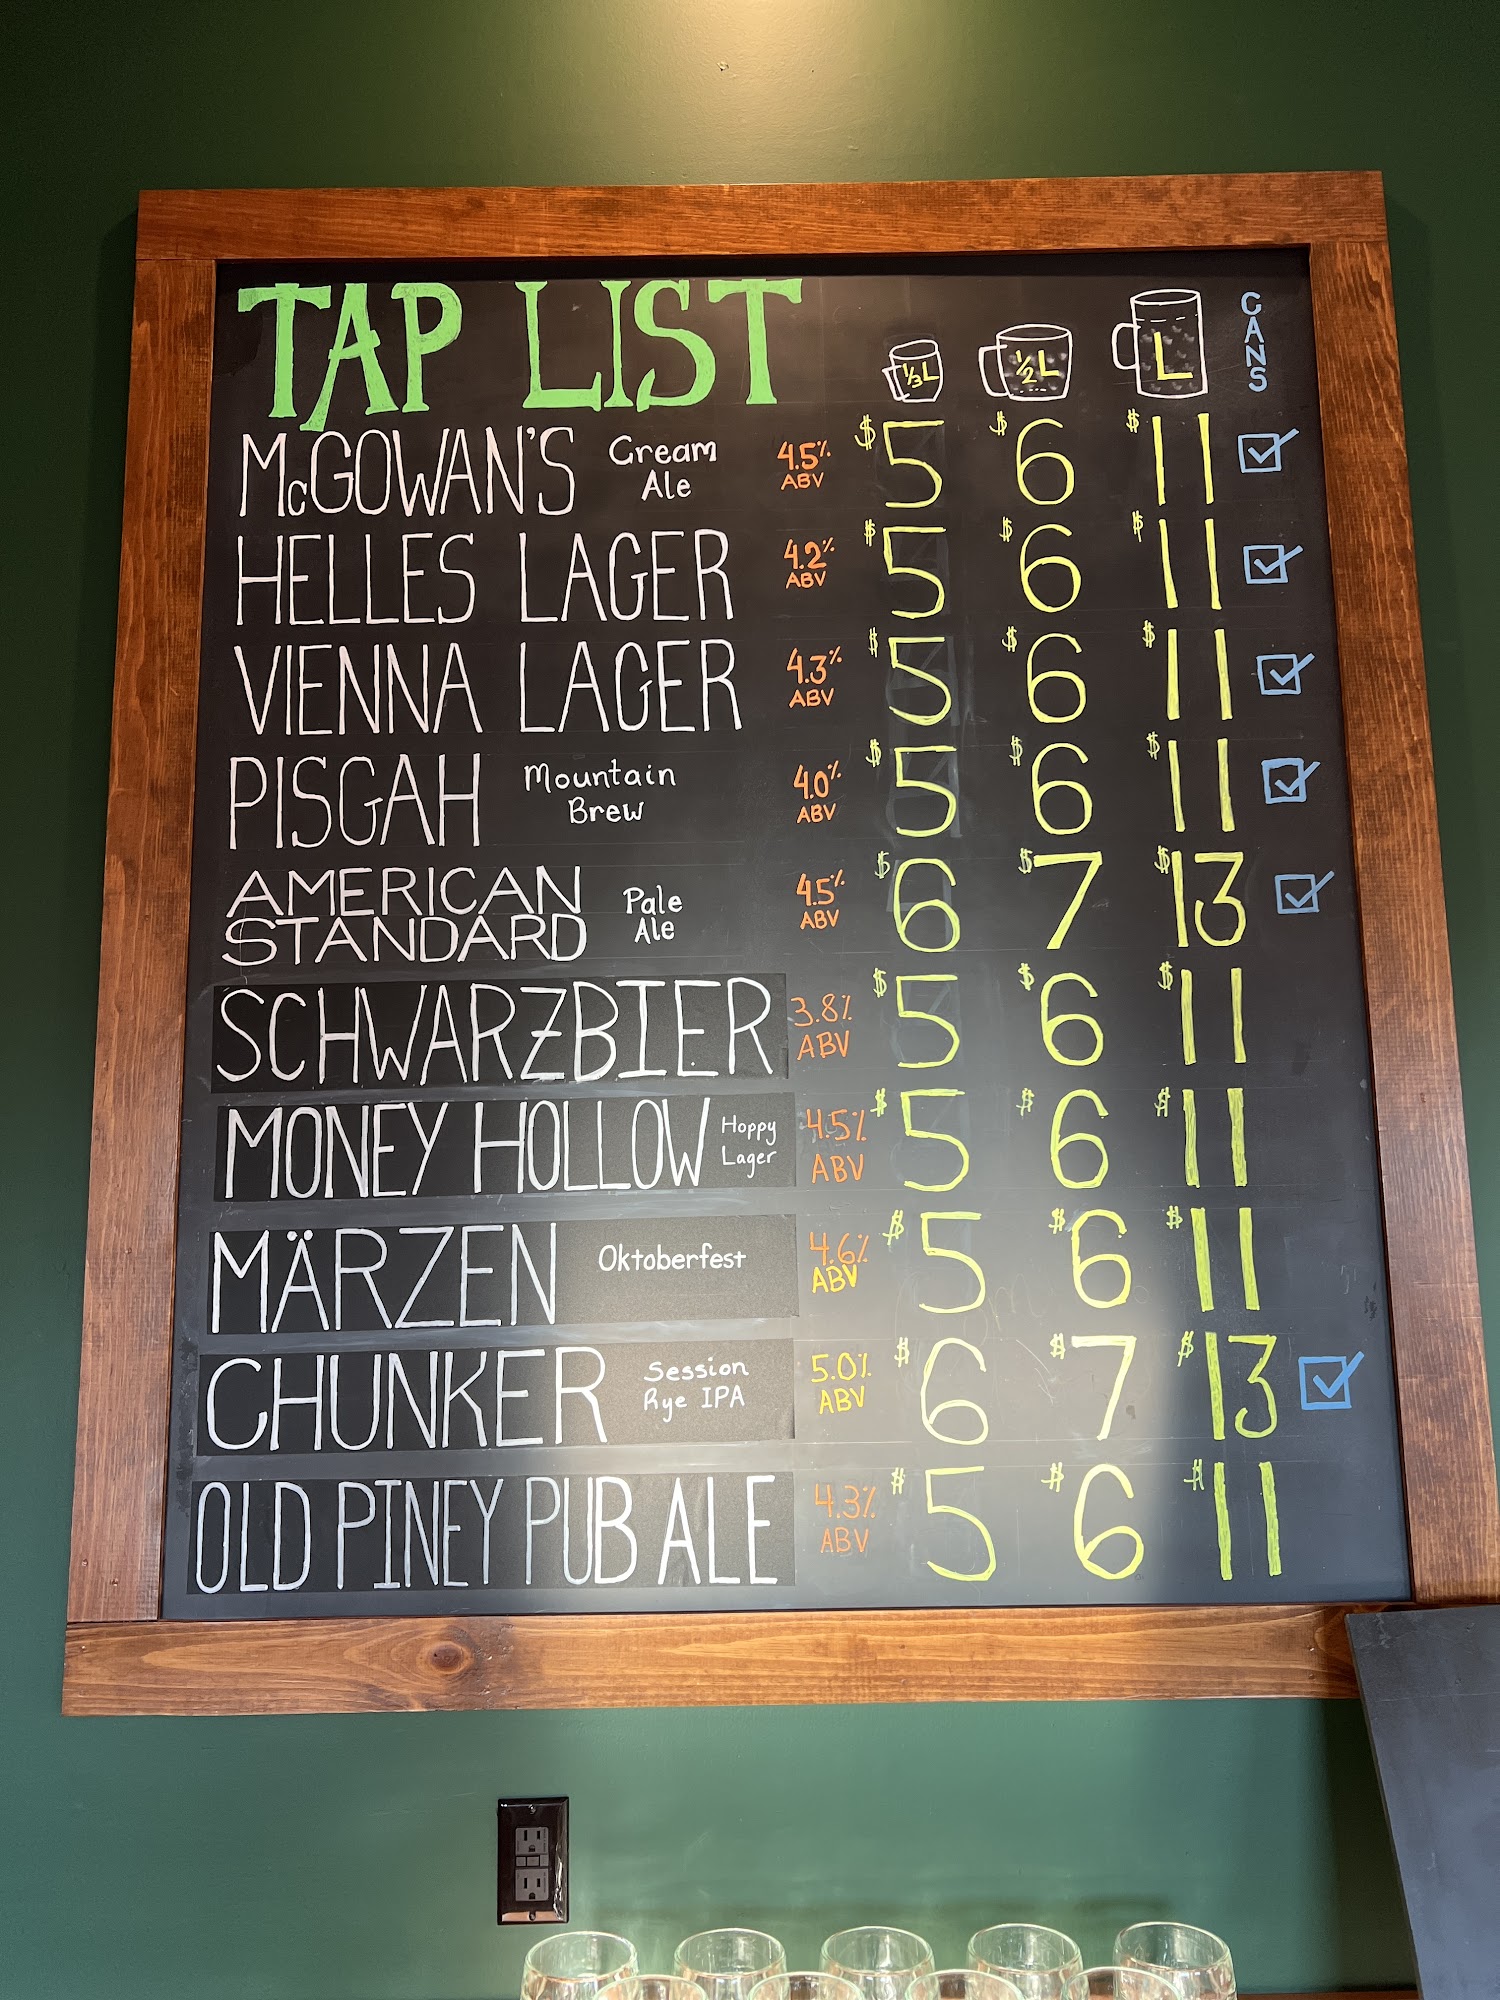 TAP LIST 1/3L 1/2L L CANS
McGOWAN'S Cream Ale 4.5% ABV $5 $6 $11
HELLES LAGER 4.2% ABV $5 $6 $11
VIENNA LAGER 4.3% ABV $5 $6 $11
PISGAH Mountain Brew 4.0% ABV $5 $6 $11
AMERICAN STANDARD Pale Ale 4.5% ABV $6 $7 $13
SCHWARZBIER 3.8% ABV $5 $6 $11
MONEY HOLLOW Hoppy Lager 4.5% ABV $5 $6 $11
MÄRZEN Oktoberfest 4.6% ABV $5 $6 $11
CHUNKER Session Rye IPA 5.0% ABV $6 $7 $13
OLD PINEY PUB ALE 4.3% ABV $5 $6 $11